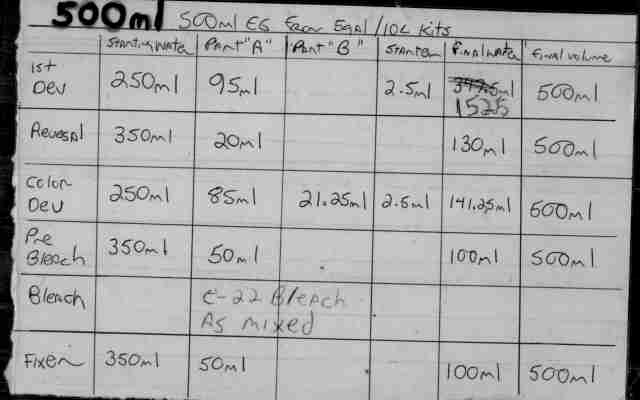 500ml 500ml E6 From 5gal/10L Kits
Starting Water Part "A" Part "B" Starter Final Water Final Volume
1st Dev 250ml 95ml 2.5ml 152.5 500ml
Reversal 350ml 20ml 130ml 500ml
Color Dev 250ml 85ml 21.25ml 2.5ml 141.25ml 500ml
Pre Bleach 350ml 50ml 100ml 500ml
Bleach C-22 Bleach
As mixed
Fixer 350ml 50ml 100ml 500ml